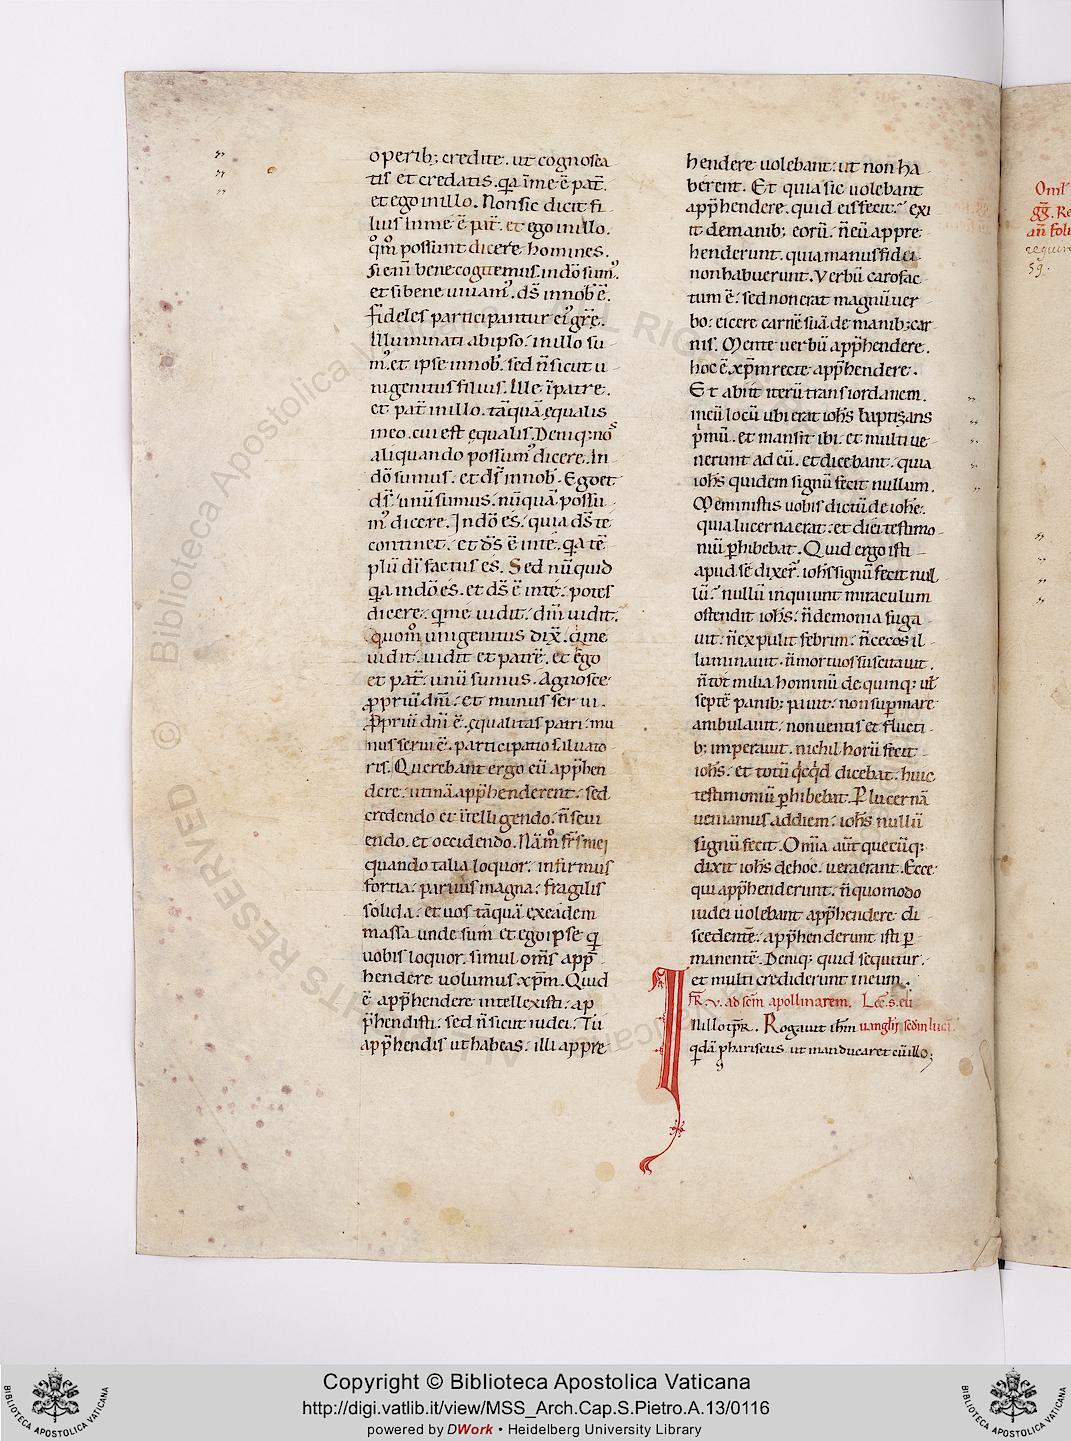 operib; credite. ut cognosca
tis et credatis. q̄a ī me ē pat̄.
et ego in illo. Non sic dicit fi
lius in me ē pat̄. et ego in illo.
q̄m̄ possunt dicere homines.
Si eni bene cogitemus. in dō sum᷒.
et si bene uiuam᷒. ds̄ in nob̄ ē.
fideles participantur ei᷒ grē.
Illuminati ab ipso. in illo su
m᷒. et ipse in nob̄. sed n̄ sicut u
nigenitus filius. Ille ī patre.
et pat̄ in illo. tāquā ęqualis
in eo. cui est ęqualis. Deniq; nos
aliquando possum᷒ dicere. In
dō sumus. et ds̄ in nob̄. Ego et
ds̄ unū sumus. nūquā possu
m᷒ dicere. In dō es. quia ds̄ te
continet. et ds̄ ē in te. q̄a tē
plū dī factus es. Sed nūquid
q̄a in dō es. et ds̄ ē in te. potes
dicere. q̄ me uidit. dm̄ uidit.
quom̄ unigenitus dix̄. q̄ me
uidit. uidit et patrē. et ego
et pat̄ unū sumus. Agnosce
ꝓpriū dn̄i. et munus serui.
Ꝓpriū dn̄i ē. ęqualitas patri. mu
nus serui ē. participatio saluato
ris. Querebant ergo eū app̄hen
dere. utinā app̄henderent. sed
credendo et ītelligendo. n̄ seui
endo. et occidendo. Nā m̄ frs̄ mei
quando talia loquor. infirmus
fortia. paruus magna. fragilis
solida. et uos tāquā ex eadem
massa unde sum et ego ipse q̄
uobis loquor. simul om̄s app̄
hendere uolumus xp̄m. Quid
ē app̄hendere intellexisti. ap
p̄hendisti. sed n̄ sicut iudei. Tu
app̄hendis ut habeas. illi appre
hendere uolebant. ut non ha
berent. Et quia sic uolebant
app̄hendere. quid eis fecit. exi
it de manib; eorū. n̄ eū appre
henderunt. quia manus fidei
non habuerunt. Verbū caro fac
tum ē. sed non erat magnū uer
bo. eicere carnē suā de manib; car
nis. Mente uerbū app̄hendere.
hoc ē xp̄m recte app̄hendere.
Et abiit iterū trans iordanem.
in eū locū ubi erat ioh̄s baptizans
p̄mū. et mansit ibi. et multi ue
nerunt ad eū. et dicebant. quia
ioh̄s quidem signū fecit nullum.
Meministis uobis dictū de ioh̄e.
quia lucerna erat. et diei testimo
niū ꝑhibebat. Quid ergo isti
apud se dixer̄. ioh̄s signū fecit nul
lū. nullū inquiunt miraculum
ostendit ioh̄s. n̄ demonia fuga
uit. n̄ expulit febrim. n̄ cecos il
luminauit. n̄ mortuos suscitauit.
n̄ tot milia hominū de quinq; ul̄
septē panib; pauit. non suꝑ mare
ambulauit. non uentis et flucti
b; imperauit. nichil horū fecit
ioh̄s. et totū q̄cq̄d dicebat. huic
testimoniū ꝑhibebat. P lucernā
ueniamus ad diem. ioh̄s nullū
signū fecit. Om̄ia aūt quecūq;
dixit ioh̄s de hoc. uera erant. Ecce
qui app̄henderunt. n̄ quomodo
iudei uolebant app̄hendere di
scedentē. app̄henderunt isti ꝑ
manentē. Deniq; quid sequitur.
et multi crediderunt in eum.
FR̄. V. ad scm̄ apollinarem. Lec̄. s. eu
In illo tp̄r. Rogauit ihm̄ uangl̄ij sedm luca.
q̄dā phariseus. ut manducaret cū illo;
Oml̄
gḡ. Re
59.
Copyright © Biblioteca Apostolica Vaticana
http://digi.vatlib.it/view/MSS_Arch.Cap.S.Pietro.A.13/0116
powered by DWork • Heidelberg University Library
BIBLIOTECA APOSTOLICA VATICANA
BIBLIOTECA APOSTOLICA VATICANA